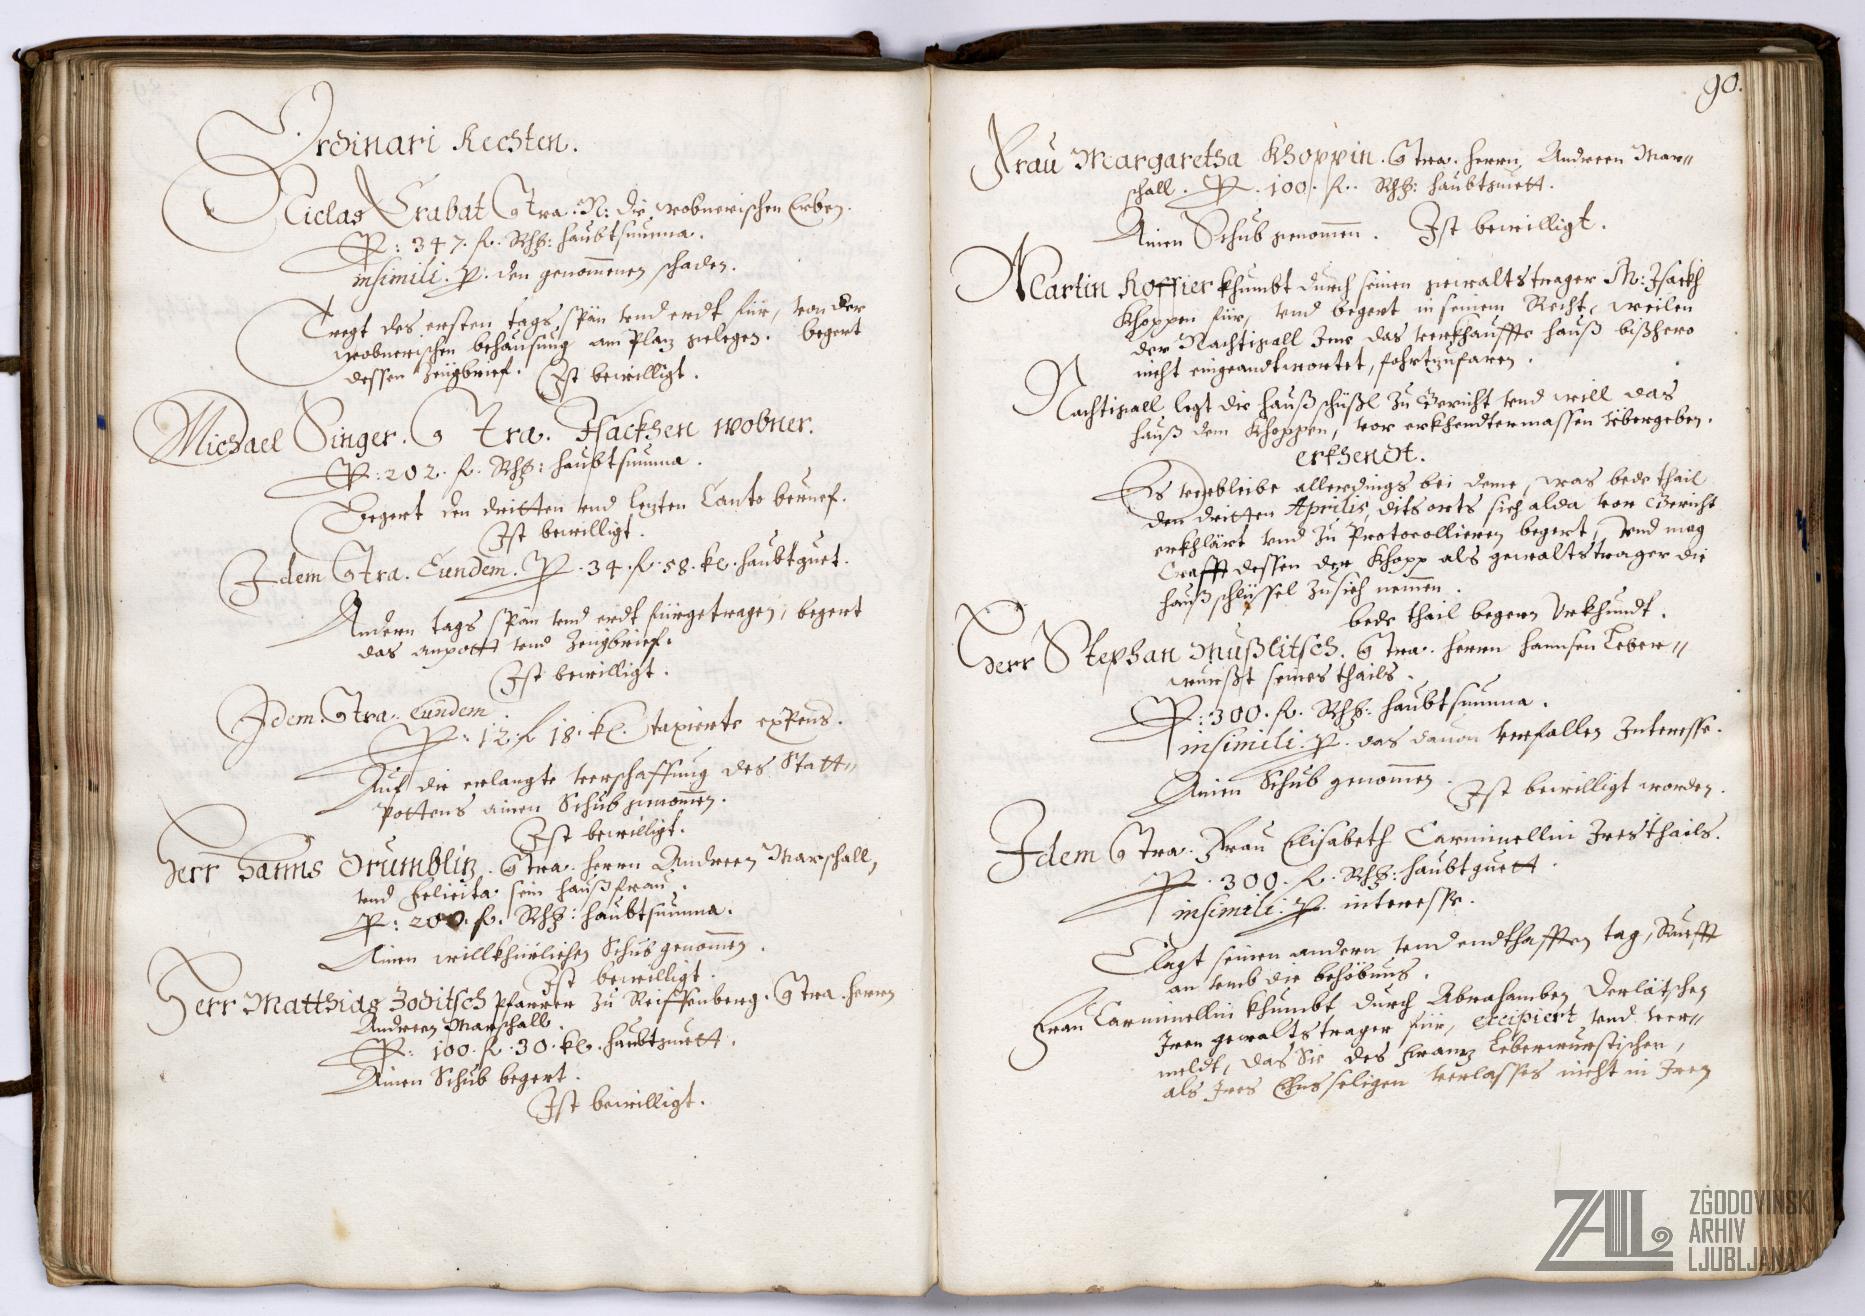 Ordinari Rechten.
Niclas Crabat Contra. N: die wobnerischen Erben.
P: 347. fl. Rh: haubtsumma.
insimili. P. den genommenen schaden.
Tregt des ersten tags, span vnd erdt für, von der
wobnerischen behausung am Plaz gelegen. begert
dessen Zeugbrief. Ist bewilligt.
Michael Singer. Contra. Isackhen wobner.
P: 202. fl. Rh: haubtsumma.
Begert den dritten vnd lezten Canto berueff.
Ist bewilligt.
Idem Contra. Eundem. P. 34. fl. 58. kr. haubtguet.
Andern tags span vnd erdt fürgetragen, begert
das anpott vnd Zeugbrief.
Ist bewilligt.
Idem. Contra. Eundem
P: 12. fl 18. kr. taxierte expens.
Auf die erlangte verschaffung des Statt-
pottens ainen Schub genommen.
Ist bewilligt.
Herr Hanns Drumbliz. Contra. herrn Andreen Marschall,
vnd Felicita sein haußfrau.
P: 200. fl. Rh: haubtsumma.
Ainen willkhürlichen Schub genommen.
Ist bewilligt.
Herr Matthias Zoditsch Pfarrer zu Reiffenberg. Contra. herrn
Andreen Marschall.
P: 100. fl. 30. kr. haubtguett.
Ainen Schub begert.
Ist bewilligt.
90.
Frau Margaretha Khoppin. Contra. herrn Andreen Mar-
schall. P. 100. fl. Rh: haubtguett.
Ainen Schub genommen. Ist bewilligt.
Martin Roffier khumbt durch seinen gewaltstrager M: Isackh
Khoppen für, vnd begert in seinem Recht, weilen
der Nachtigall Ime das verkhauffte hauß bißhero
nicht eingeandtwortet, fohrtzufaren.
Nachtigall legt die haußschüßl zu Gericht vnd will das
hauß dem Khoppen, vor erkhendtermassen vbergeben.
erkhendt.
Es verbleibe allerdings bei deme, was bede thail
den dritten Aprilis, dits orts sich alda vor Gericht
erkhlärt vnd zu Protocollieren begert, vnd mag
Crafft dessen der Khopp als gewaltstrager die
haußschlüssel zu sich nemmen.
bede thail begern Vrkhundt.
Herr Stephan Mußlitsch. Contra. herrn hannsen Leber-
wurßt seines thails.
P: 300. fl. Rh: haubtsumma.
insimili. P. das dauon verfallen Interesse.
Ainen Schub genommen.
Ist bewilligt worden.
Idem Contra. Frau Elisabeth Carminellin Ires thails.
P. 300. fl. Rh: haubtguett.
insimili. P. interesse.
Clagt seinen andern vnd endthafften tag, Ruefft
an vmb die behöbnus.
Frau Carminellin khumbt, durch Abrahamben Derlätschen
Iren gewaltstrager für, excipiert vnd ver-
meldt, das Sie des Franz Leberwurstischen,
als Ires Ehrsseligen verlasses nicht in Iren
ZAL
ZGODOVINSKI
ARHIV
LJUBLJANA